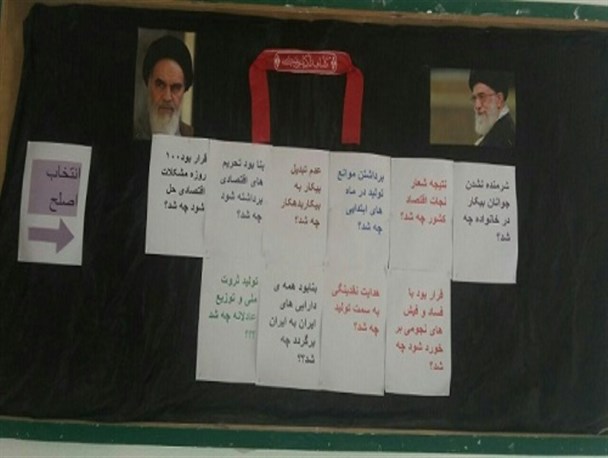 انتخاب
اصلح
شرمنده نشدن
جوانان بیکار
در خانواده چه
شد؟
نتیجه شعار
نجات اقتصاد
کشور چه شد؟
برداشتن موانع
تولید در ماه
های ابتدایی
چه شد؟
عدم تبدیل
بیکار به
بیکاربدهکار
چه شد؟
بنا بود تحریم
های اقتصادی
برداشته شود
چه شد؟
قرار بود۱۰۰
روزه مشکلات
اقتصادی حل
شود چه شد؟
قرار بود با
فساد و فیش
های نجومی بر
خورد شود چه
شد؟
هدایت نقدینگی
به سمت تولید
چه شد؟
بنابود همه ی
دارایی های
ایران به ایران
برگردد چه
شد؟؟
تولید ثروت
ملی و توزیع
عادلانه چه شد
؟؟؟